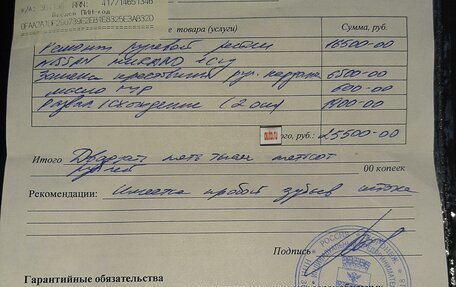 RRN: 417714651346
Введен ПИН-код
товара (услуги) Сумма, руб.
Ремонт рулевой рейки 16500-00
NISSAN MURANO
Замена крестовины рул. кардана 6500-00
масло ГУР 600-00
Развал/схождение (2 оси) 1900-00
auto.ru
того, руб.: 25500-00
Итого Двадцать пять тысяч пятьсот
рублей 00 копеек
Рекомендации: Имеется пробой зубьев штока
Подпись
Гарантийные обязательства